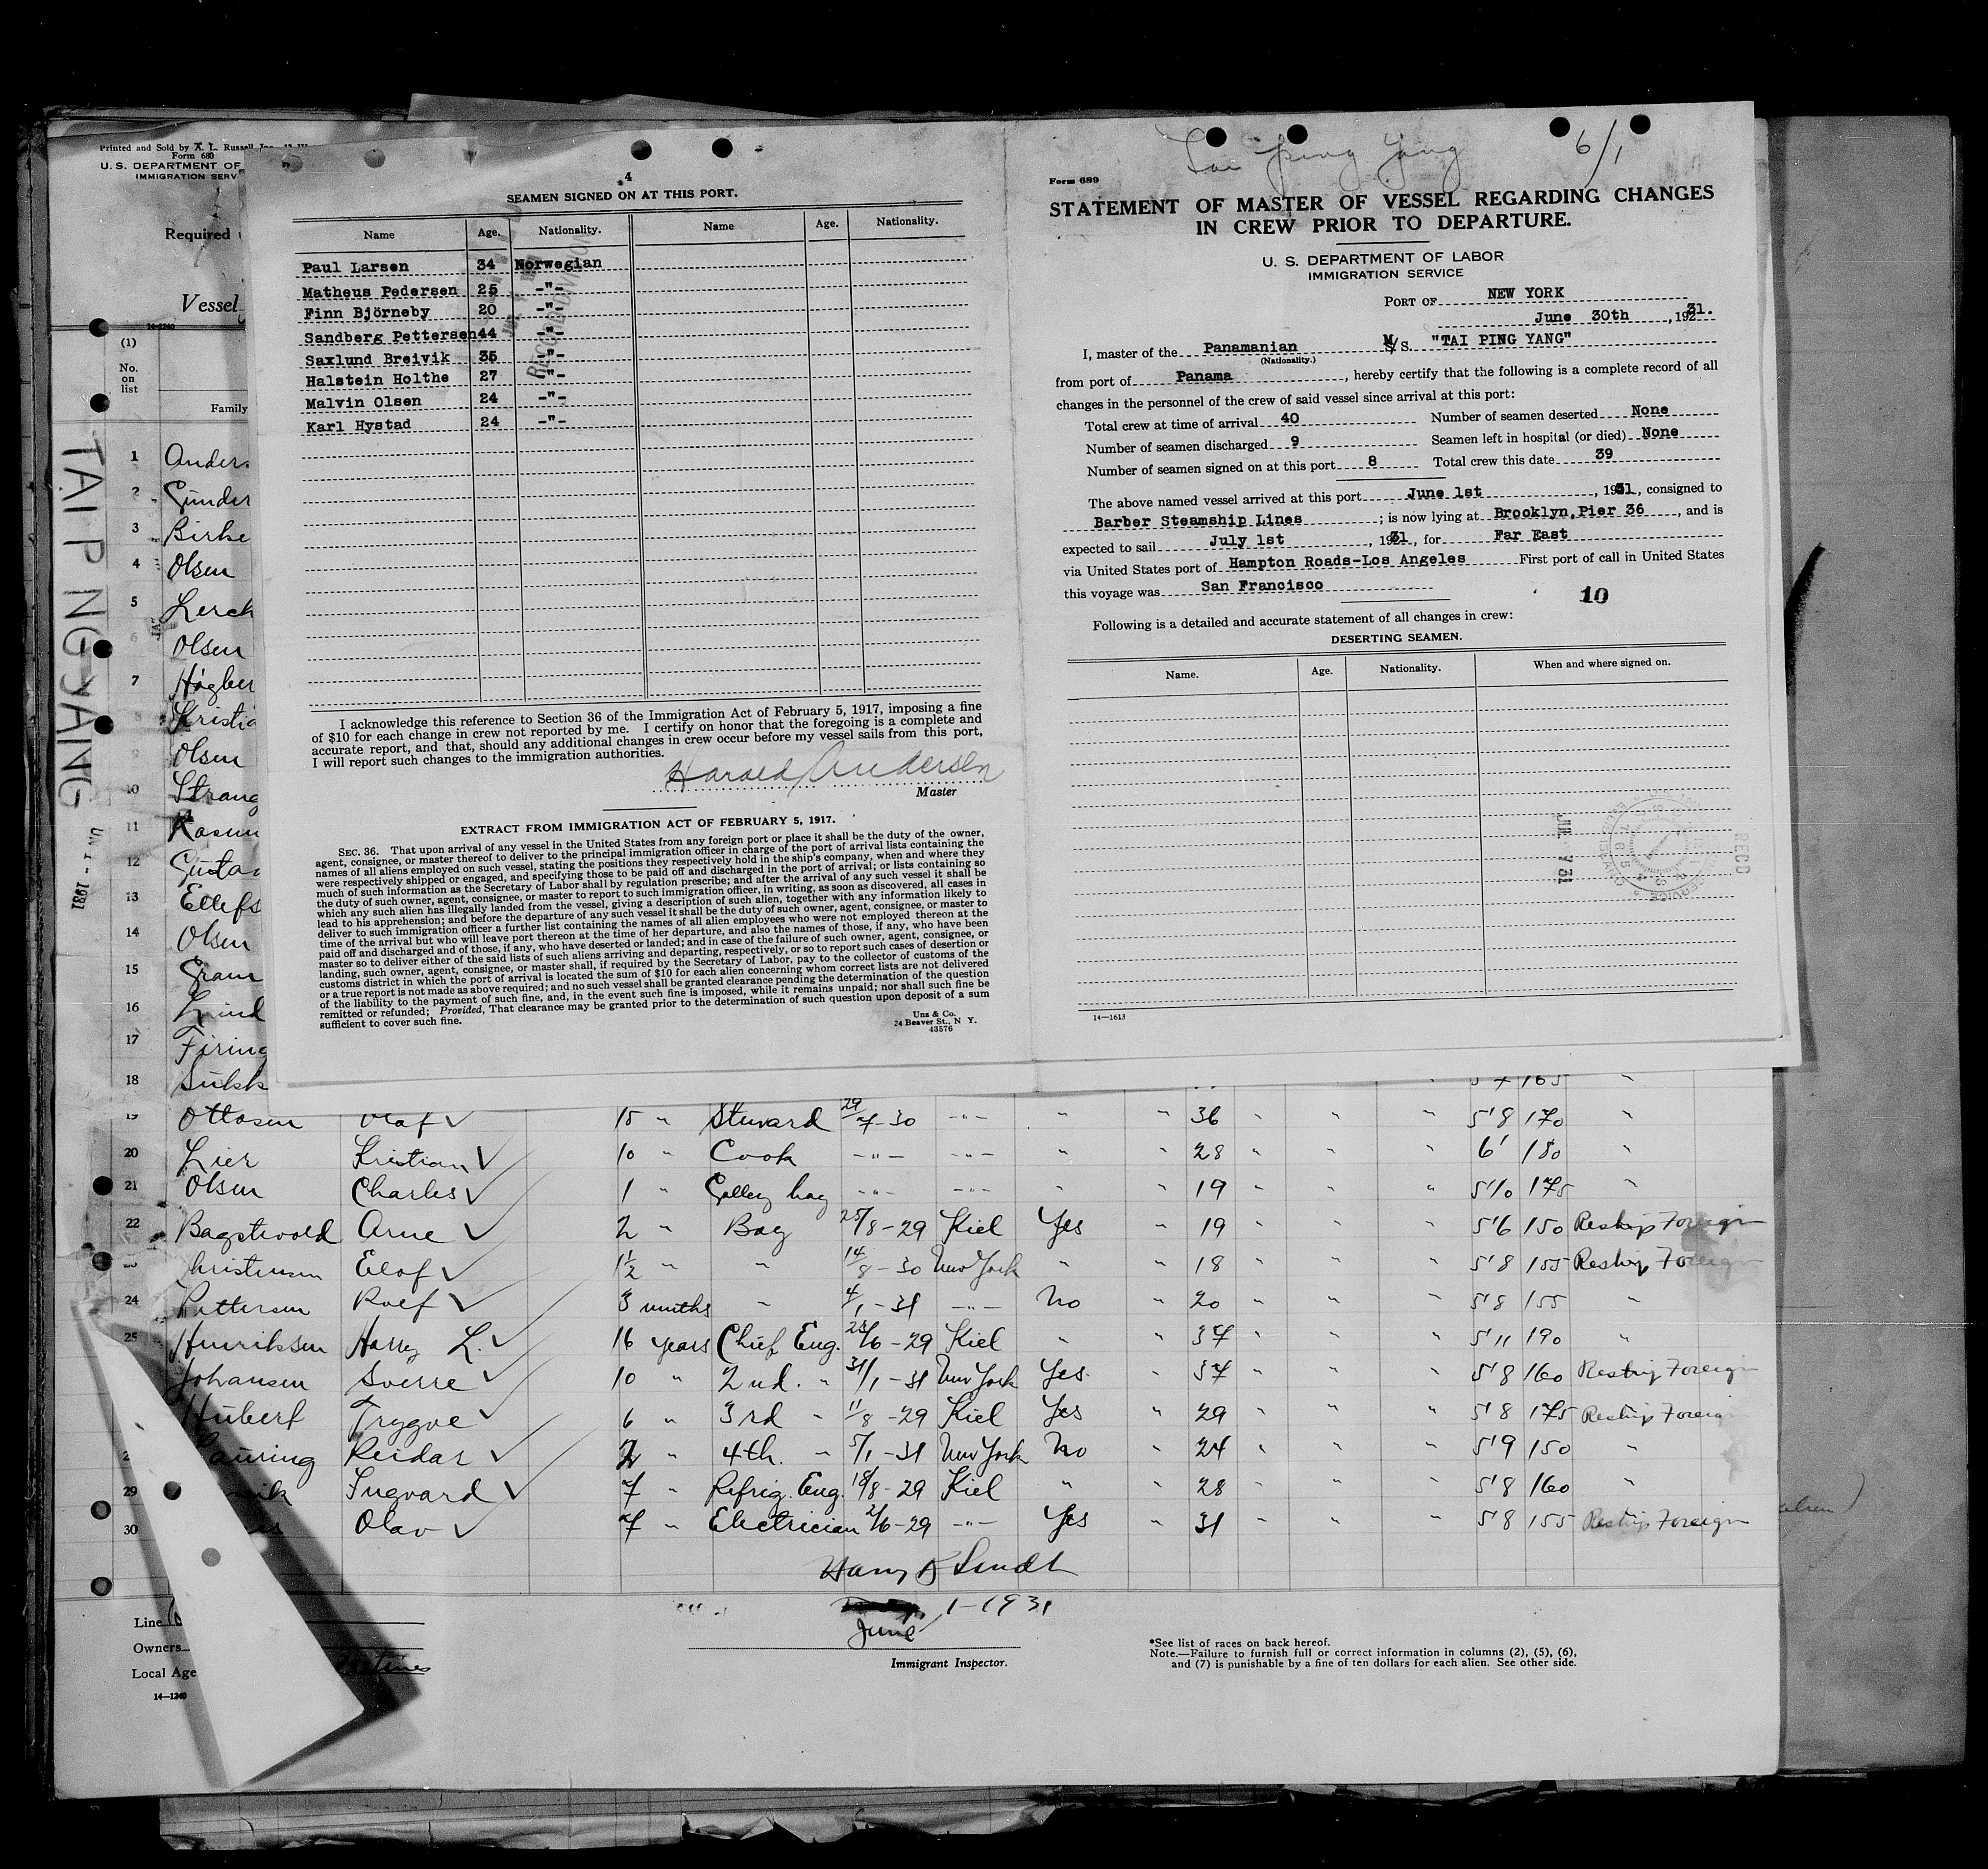 Printed and Sold by A. L. Russell
Form 680
U. S. DEPARTMENT OF
IMMIGRATION SERV
Required
Vessel
14-1240
(1)
No.
on
list
Family
TAI PING YANG
1 Anders
2 Gunder
3 Birke
4 Olsen
5 Lerch
6 Olsen
7 Högber
8 Kristia
9 Olsen
10 Strang
11 Rasmu
12 Gustav
13 Ellefs
14 Olsen
15 Gram
16 Lind
17 Firing
18 Sukk
4
SEAMEN SIGNED ON AT THIS PORT.
Name Age. Nationality. Name Age. Nationality.
Paul Larsen 34 Norwegian
Matheus Pedersen 25 -"-
Finn Björneby 20 -"-
Sandberg Pettersen 44 -"-
Saxlund Breivik 35 -"-
Halstein Holthe 27 -"-
Malvin Olsen 24 -"-
Karl Hystad 24 -"-
I acknowledge this reference to Section 36 of the Immigration Act of February 5, 1917, imposing a fine
of $10 for each change in crew not reported by me. I certify on honor that the foregoing is a complete and
accurate report, and that, should any additional changes in crew occur before my vessel sails from this port,
I will report such changes to the immigration authorities.
Harald Andersen
Master
EXTRACT FROM IMMIGRATION ACT OF FEBRUARY 5, 1917.
SEC. 36. That upon arrival of any vessel in the United States from any foreign port or place it shall be the duty of the owner,
agent, consignee, or master thereof to deliver to the principal immigration officer in charge of the port of arrival lists containing the
names of all aliens employed on such vessel, stating the positions they respectively hold in the ship's company, when and where they
were respectively shipped or engaged, and specifying those to be paid off and discharged in the port of arrival; or lists containing so
much of such information as the Secretary of Labor shall by regulation prescribe; and after the arrival of any such vessel it shall be
the duty of such owner, agent, consignee, or master to report to such immigration officer, in writing, as soon as discovered, all cases in
which any such alien has illegally landed from the vessel, giving a description of such alien, together with any information likely to
lead to his apprehension; and before the departure of any such vessel it shall be the duty of such owner, agent, consignee, or master to
deliver to such immigration officer a further list containing the names of all alien employees who were not employed thereon at the
time of the arrival but who will leave port thereon at the time of her departure, and also the names of those, if any, who have been
paid off and discharged and of those, if any, who have deserted or landed; and in case of the failure of such owner, agent, consignee, or
master so to deliver either of the said lists of such aliens arriving and departing, respectively, or so to report such cases of desertion or
landing, such owner, agent, consignee, or master shall, if required by the Secretary of Labor, pay to the collector of customs of the
customs district in which the port of arrival is located the sum of $10 for each alien concerning whom correct lists are not delivered
or a true report is not made as above required; and no such vessel shall be granted clearance pending the determination of the question
of the liability to the payment of such fine, and, in the event such fine is imposed, while it remains unpaid; nor shall such fine be
remitted or refunded; Provided, That clearance may be granted prior to the determination of such question upon deposit of a sum
sufficient to cover such fine.
Unz & Co.
24 Beaver St., N Y.
43576
Tai Ping Yang 6/1
Form 689
STATEMENT OF MASTER OF VESSEL REGARDING CHANGES
IN CREW PRIOR TO DEPARTURE.
U. S. DEPARTMENT OF LABOR
IMMIGRATION SERVICE
PORT OF NEW YORK
June 30th, 1931.
I, master of the Panamanian M/S. "TAI PING YANG"
(Nationality.)
from port of Panama, hereby certify that the following is a complete record of all
changes in the personnel of the crew of said vessel since arrival at this port:
Total crew at time of arrival 40 Number of seamen deserted None
Number of seamen discharged 9 Seamen left in hospital (or died) None
Number of seamen signed on at this port 8 Total crew this date 39
The above named vessel arrived at this port June 1st, 1931, consigned to
Barber Steamship Lines; is now lying at Brooklyn, Pier 36, and is
expected to sail July 1st, 1931, for Far East
via United States port of Hampton Roads-Los Angeles First port of call in United States
this voyage was San Francisco
10
Following is a detailed and accurate statement of all changes in crew:
DESERTING SEAMEN.
Name. Age. Nationality. When and where signed on.
14-1613
5'7 165 "
19 Ottosen Olaf 15 " Steward 29/7-30 -"- " " 36 " " " 5'8 170 "
20 Lier Kristian 10 " Cook -"- -"- " " 28 " " " 6' 180 "
21 Olsen Charles 1 " Galley boy -"- -"- " " 19 " " " 5'10 175 "
22 Bagstevold Arne 2 " Boy 25/8-29 Kiel Yes " 19 " " " 5'6 150 Reship Foreign
Christensen Elof 1½ " " 14/8-30 New York " " 18 " " " 5'8 155 Reship Foreign
24 Pettersen Rolf 3 months " 4/1-31 -"- No " 20 " " " 5'8 155 "
25 Henriksen Harry L. 16 years Chief Eng. 28/6-29 Kiel " " 37 " " " 5'11 190 "
Johansen Sverre 10 " 2nd. " 31/1-31 New York Yes " 37 " " " 5'8 160 Reship Foreign
Hubert Trygve 6 " 3rd " 11/8-29 Kiel Yes " 29 " " " 5'8 175 Reship Foreign
auring Reidar 2 " 4th. " 5/1-31 New York No " 24 " " " 5'9 150 "
29 vik Ingvard 7 " Refrig. Eng. 18/8-29 Kiel " " 28 " " " 5'8 160 "
30 Olav 7 " Electrician 2/6-29 -"- Yes " 31 " " " 5'8 155 Reship Foreign
June 1-1931
Immigrant Inspector.
Line
Owners
Local Age
14-1240
*See list of races on back hereof.
Note.—Failure to furnish full or correct information in columns (2), (5), (6),
and (7) is punishable by a fine of ten dollars for each alien. See other side.